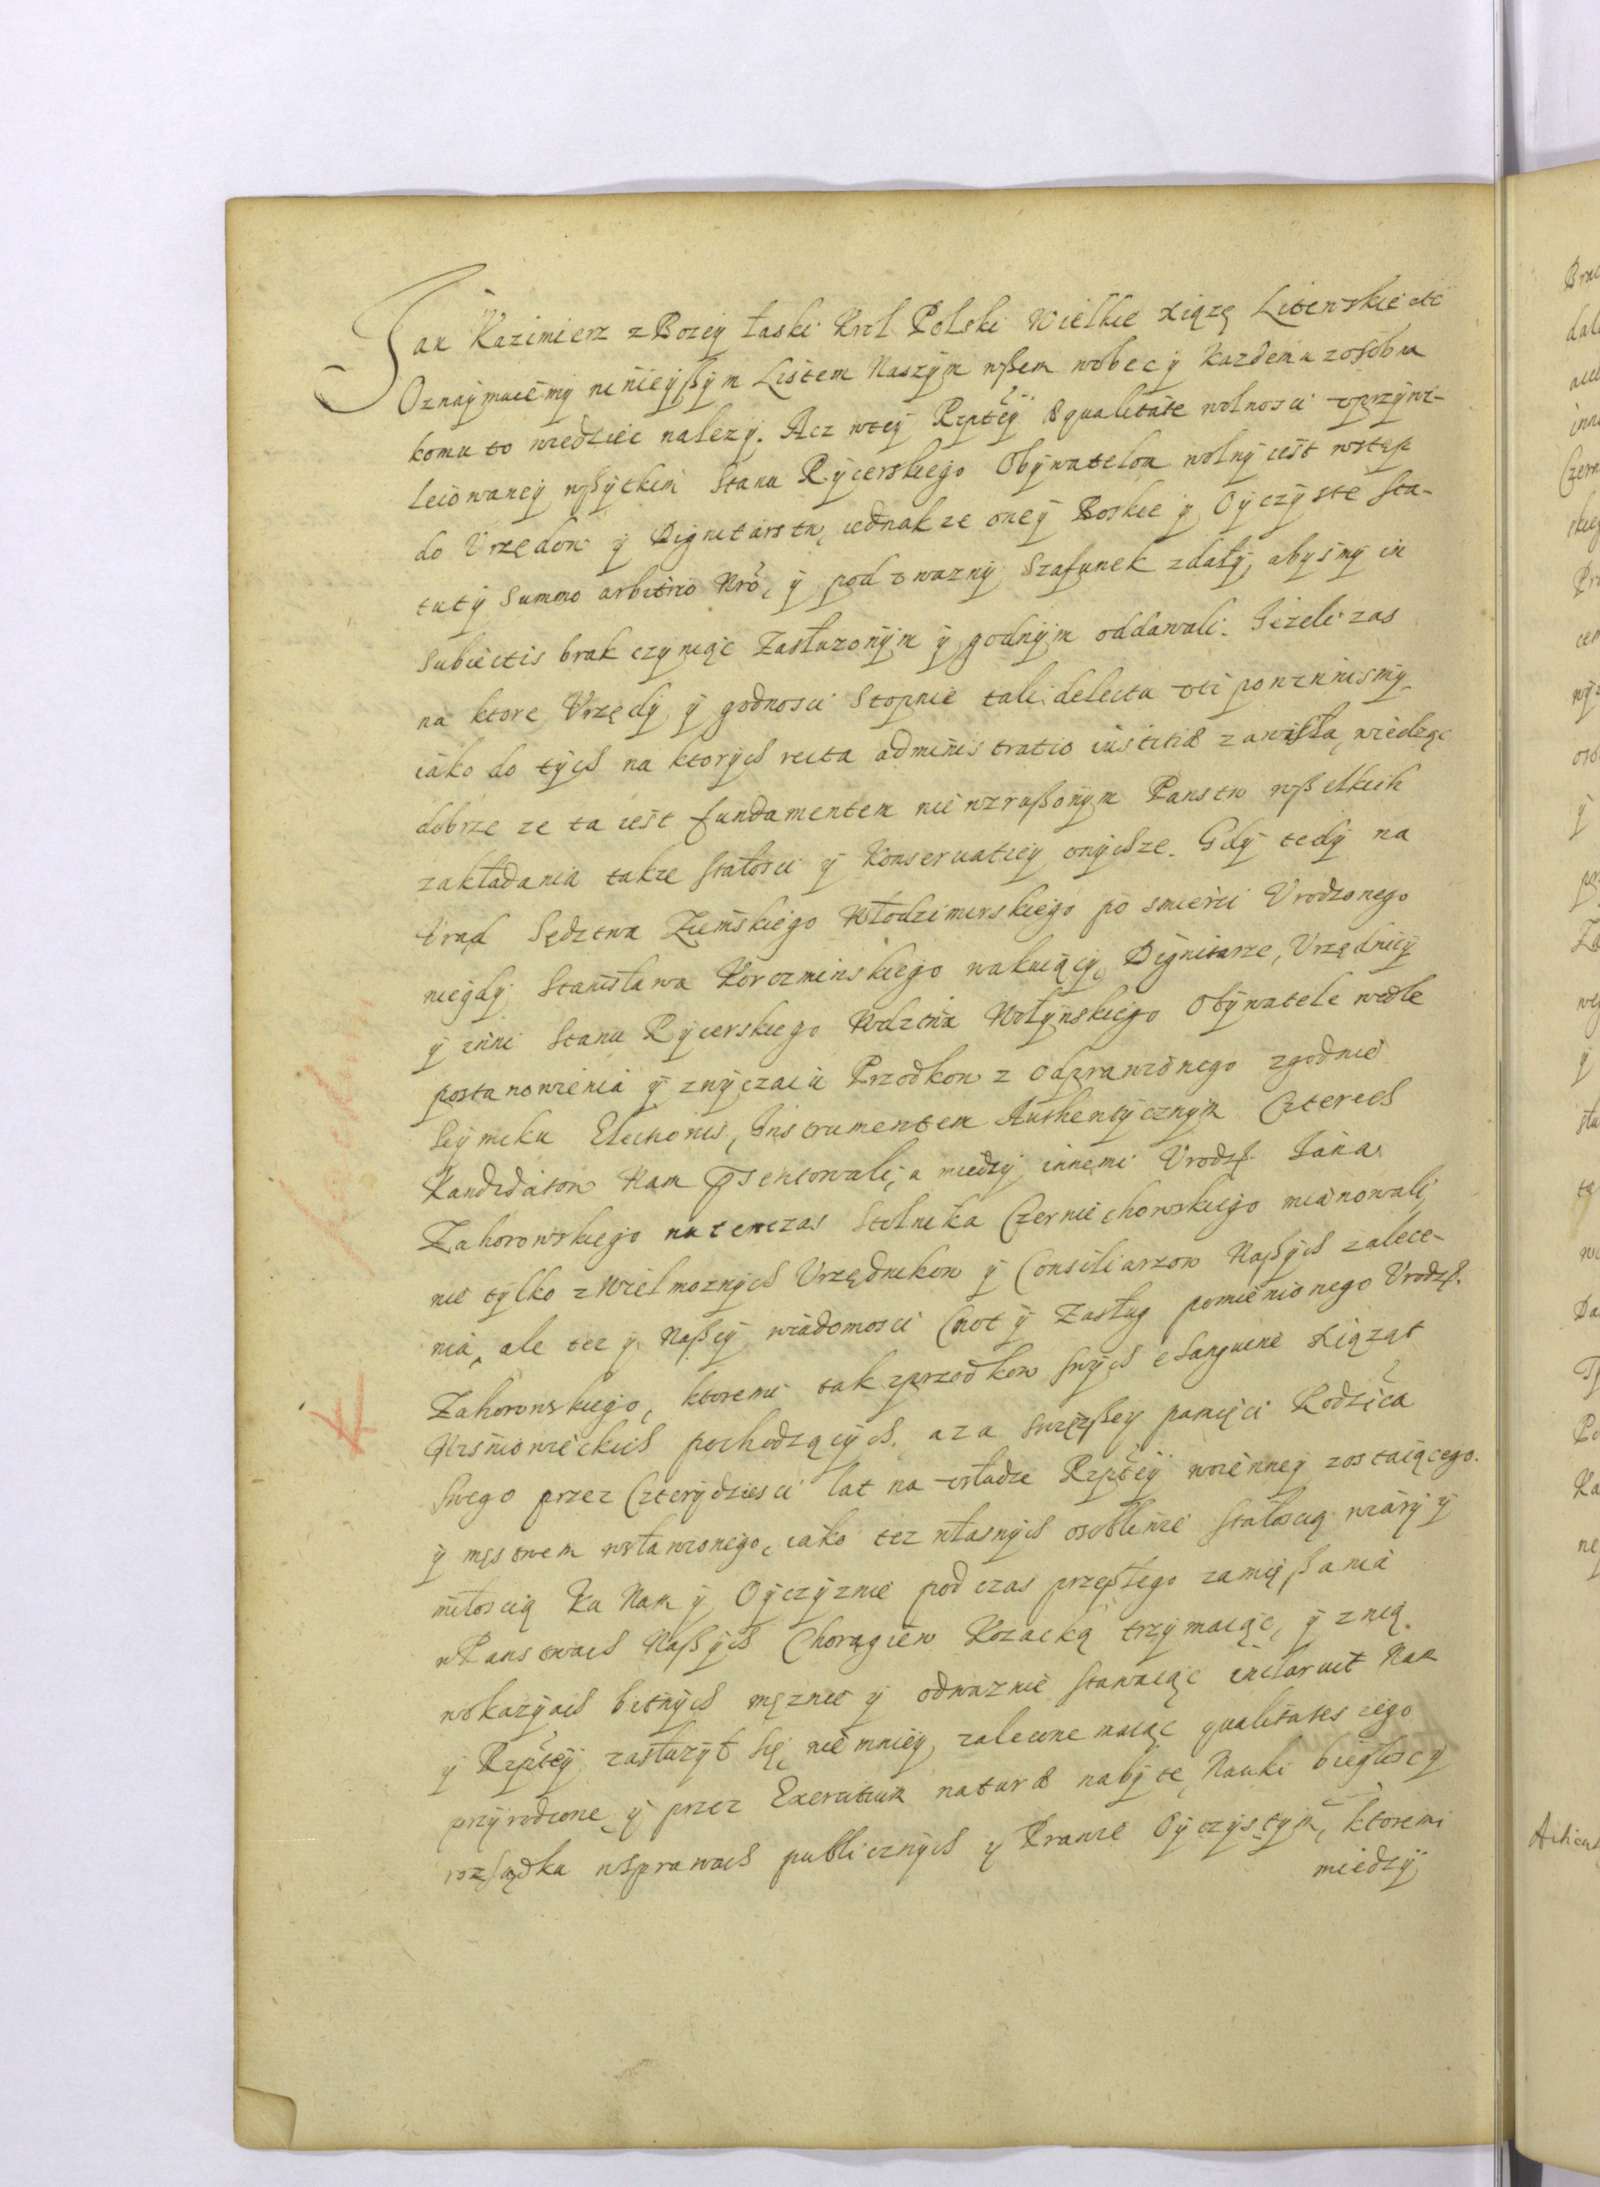 Jan Kazimierz z Bozey łaski Krol Polski Wielkie Xiązę Litewskie etc
Oznaymuiemy ninieyßym Listem Naszym wßem wobec y Kazdemu zosobna
komu to wiedziec nalezy. Acz wtey Rzpltey æqualitate wolnosci uprzywi-
leiowaney wßytkim Stanu Rycerskiego Obywatelom wolny iest wstęp
do Vrzędow y Dignitarstw, iednakze oney Boskie y Oyczyste sta-
tuty Summo arbitrio Nro, y pod uwazny Szafunek zdały, abysmy in
Subiectis brak czyniąc Zasłuzonym y godnym oddawali. Jezeli zas
na ktore Vrzędy y godnosci Stopnie tali delectu uti powinnismy
iako do tych na ktorych recta administratio iustitiæ zawisła, wiedząc
dobrze ze ta iest fundamentem niewzrußonym Panstw wßelkich
zakładania takze stałosci y Konseruatiey onychze. Gdy tedy na
Vrąd Sędztwa Ziemskiego Włodzimirskiego po smierci Vrodzonego
niegdy Stanisława Korczminskiego wakuiący, Dignitarze, Vrzędnicy
y inni Stanu Rycerskiego Wdztwa Wołynskiego Obywatele wedle
postanowienia y zwyczaiu Przodkow z odprawionego zgodnie
Seymiku Electionis, Instrumentem Authentycznym Czterech
Kandidatow Nam Præsentowali, a miedzy innemi Vrodz. Jana
Zahorowskiego natenczas Stolnika Czerniechowskiego mianowali,
nie tylko z Wielmoznych Vrzędnikow y Consiliarzow Naßych zalece-
nia, ale tez y Naßey wiadomosci Cnot y Zasług pomienionego Vrodz.
Zahorowskiego, ktoremi tak z przodkow swych e Sanguine Xiązat
Wisniowieckich pochodzących, a za swięzßey pamięci Rodzica
swego przez Czterydziesci lat na usłudze Rzpltey woienney zostaiącego.
y męstwem wsławionego, iako tez własnych osobliwie stałoscią wiary y
miłoscią Ku Nam y Oyczyznie pod czas przeßłego zamięßania
wPanstwach Naßych Chorągiew Kozacką trzymaiąc, y z nią
wokazyach bitnych męznie y odwaznie stawaiąc inclaruit Nam
y Rzpltey zasłuzył się, niemniey zalecone maiąc qualitates iego
przyrodzone y przez Exercitium naturæ nabyte, Nauki biegłosc y
rozsądku wSprawach publicznych y Prawie Oyczystym, ktoremi
miedzy